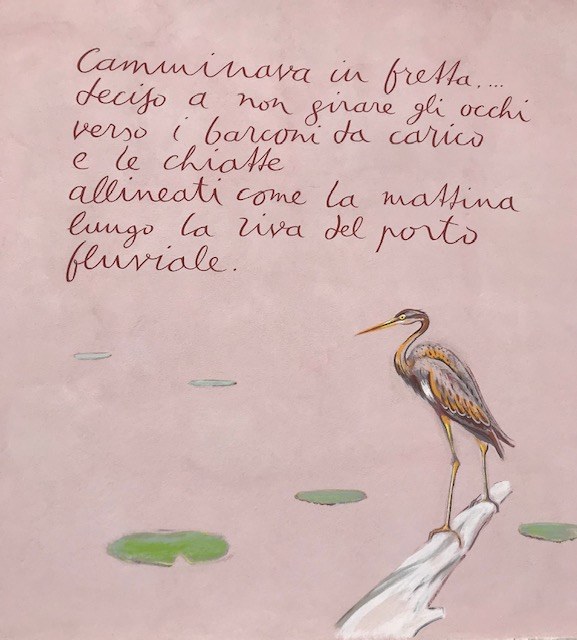 Camminava in fretta....
deciso a non girare gli occhi
verso i barconi da carico
e le chiatte
allineati come la mattina
lungo la riva del porto
fluviale.